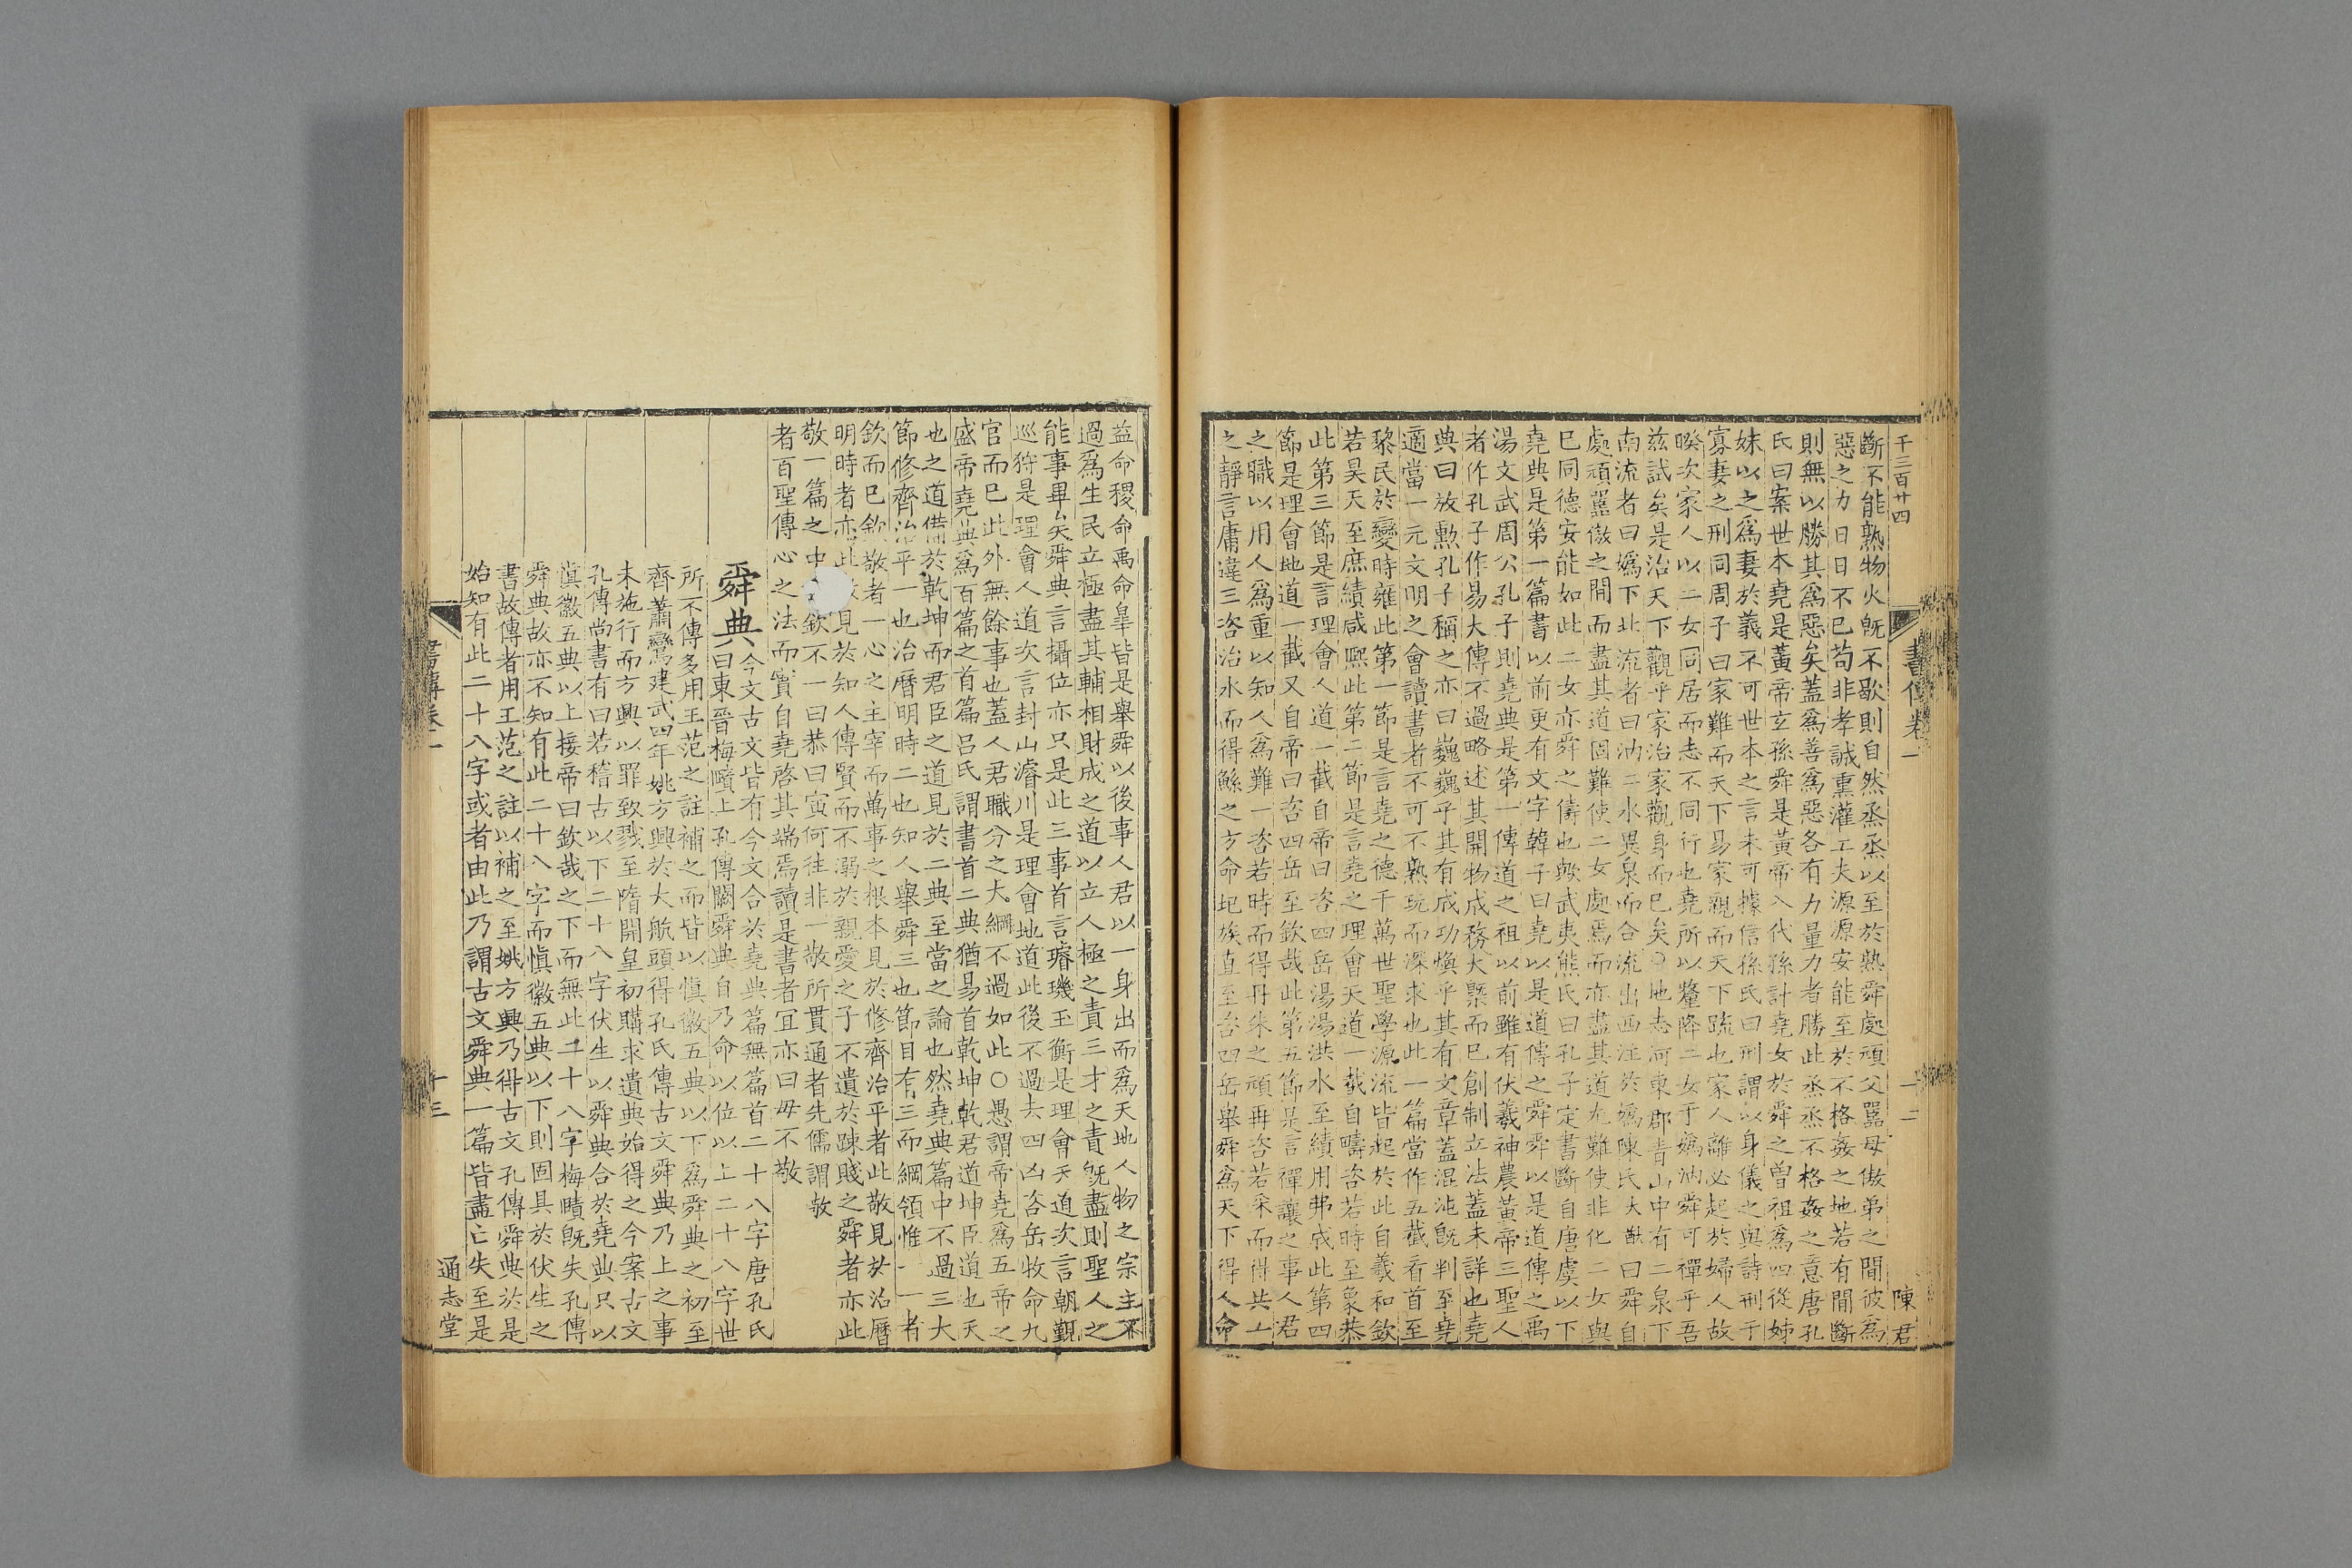 千三百廿四
書傳卷一
十二
陳君
斷不能熟物火旣不歇則自然烝烝以至於熟舜處頑父嚚母傲弟之間彼爲
惡之力日日不已苟非孝誠熏灌工夫源源安能至於不格姦之地若有間斷
則無以勝其爲惡矣蓋爲善爲惡各有力量力者勝此烝烝不格姦之意唐孔
氏曰案世本堯是黃帝玄孫舜是黃帝八代孫計堯女於舜之曾祖爲四從姊
妹以之爲妻於義不可世本之言未可據信孫氏曰刑謂以身儀之與詩刑于
寡妻之刑同周子曰家難而天下易家親而天下䟽也家人離必起於婦人故
暌次家人以二女同居而志不同行也堯所以釐降二女于嬀汭舜可禪乎吾
兹試矣是治天下觀乎家治家觀身而已矣○地志河東郡青山中有二泉下
南流者曰嬀下北流者曰汭二水異泉而合流出西注於嬀陳氏大猷曰舜自
處頑嚚傲之間而盡其道固難使二女處焉而亦盡其道尤難使非化二女與
已同德安能如此二女亦舜之儔也歟武夷熊氏曰孔子定書斷自唐虞以下
堯典是第一篇書以前更有文字韓子曰堯以是道傳之舜舜以是道傳之禹
湯文武周公孔子則堯典是第一傳道之祖以前雖有伏羲神農黃帝三聖人
者作孔子作易大傳不過略述其開物成務大槩而已創制立法蓋未詳也堯
典曰放勲孔子稱之亦曰巍巍乎其有成功煥乎其有文章蓋混沌旣判至堯
適當一元文明之會讀書者不可不熟玩而深求也此一篇當作五截看首至
黎民於變時雍此第一節是言堯之德千萬世聖學源流皆起於此自羲和欽
若昊天至庶績咸熈此第二節是言堯之理會天道一截自疇咨若時至象恭
此第三節是言理會人道一截自帝曰咨四岳湯湯洪水至績用弗成此第四
節是理會地道一截又自帝曰咨四岳至欽哉此第五節是言禪讓之事人君
之職以用人爲重以知人爲難一咨若時而得丹朱之頑再咨若采而得共工
之靜言庸違三咨治水而得鯀之方命圯族直至咨四岳舉舜爲天下得人命
益命稷命禹命臯皆是舉舜以後事人君以一身出而爲天地人物之宗主不
過爲生民立極盡其輔相財成之道以立人極之責三才之責旣盡則聖人之
能事畢矣舜典言攝位亦只是此三事首言璿璣玉衡是理會天道次言朝覲
巡狩是理會人道次言封山濬川是理會地道此後不過去四凶咨岳牧命九
官而已此外無餘事也蓋人君職分之大綱不過如此○愚謂帝堯爲五帝之
盛帝堯典爲百篇之首篇呂氏謂書首二典猶易首乾坤乾君道坤臣道也天
也之道備於乾坤而君臣之道見於二典至當之論也然堯典篇中不過三大
節修齊治平一也治曆明時二也知人舉舜三也節目有三而綱領惟一一者
欽而已欽敬者一心之主宰而萬事之根本見於修齊治平者此敬見於治曆
明時者亦此敬見於知人傳賢而不溺於親愛之子不遺於踈賤之舜者亦此
敬一篇之中欽不一曰恭曰寅何往非一敬所貫通者先儒謂敬
者百聖傳心之法而實自堯啓其端焉讀是書者冝亦曰毋不敬
舜典
今文古文皆有今文合於堯典篇無篇首二十八字唐孔氏
曰東晉梅賾上孔傳闕舜典自乃命以位以上二十八字世
所不傳多用王范之註補之而皆以愼徽五典以下爲舜典之初至
齊蕭鸞建武四年姚方興於大航頭得孔氏傳古文舜典乃上之事
未施行而方興以罪致戮至隋開皇初購求遺典始得之今案古文
孔傳尚書有曰若稽古以下二十八字伏生以舜典合於堯典只以
愼徽五典以上接帝曰欽哉之下而無此二十八字梅賾旣失孔傳
舜典故亦不知有此二十八字而愼徽五典以下則固具於伏生之
書故傳者用王范之註以補之至姚方興乃得古文孔傳舜典於是
始知有此二十八字或者由此乃謂古文舜典一篇皆盡亡失至是
書傳卷一
十三
通志堂